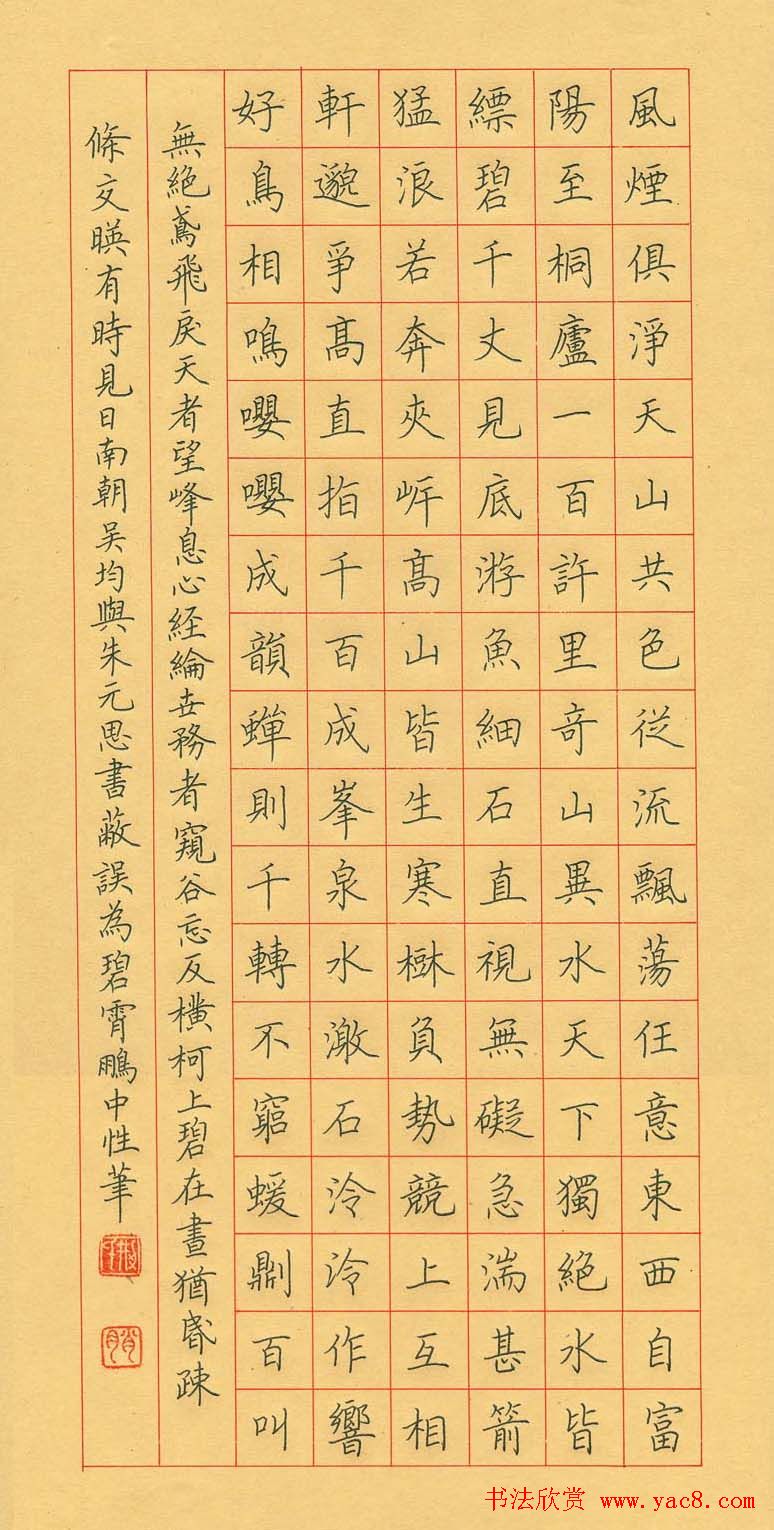 風煙俱淨天山共色從流飄蕩任意東西自富
陽至桐廬一百許里奇山異水天下獨絕水皆
縹碧千丈見底游魚細石直視無礙急湍甚箭
猛浪若奔夾岸髙山皆生寒樹負勢競上互相
軒邈爭髙直指千百成峯泉水激石泠泠作響
好鳥相鳴嚶嚶成韻蟬則千轉不窮蝯則百叫
無絕鳶飛戾天者望峰息心經綸世務者窺谷忘反橫柯上碧在晝猶昏疎
條交暎有時見日南朝吳均與朱元思書蔽誤為碧霄鵬中性筆
书法欣赏 www.yac8.com